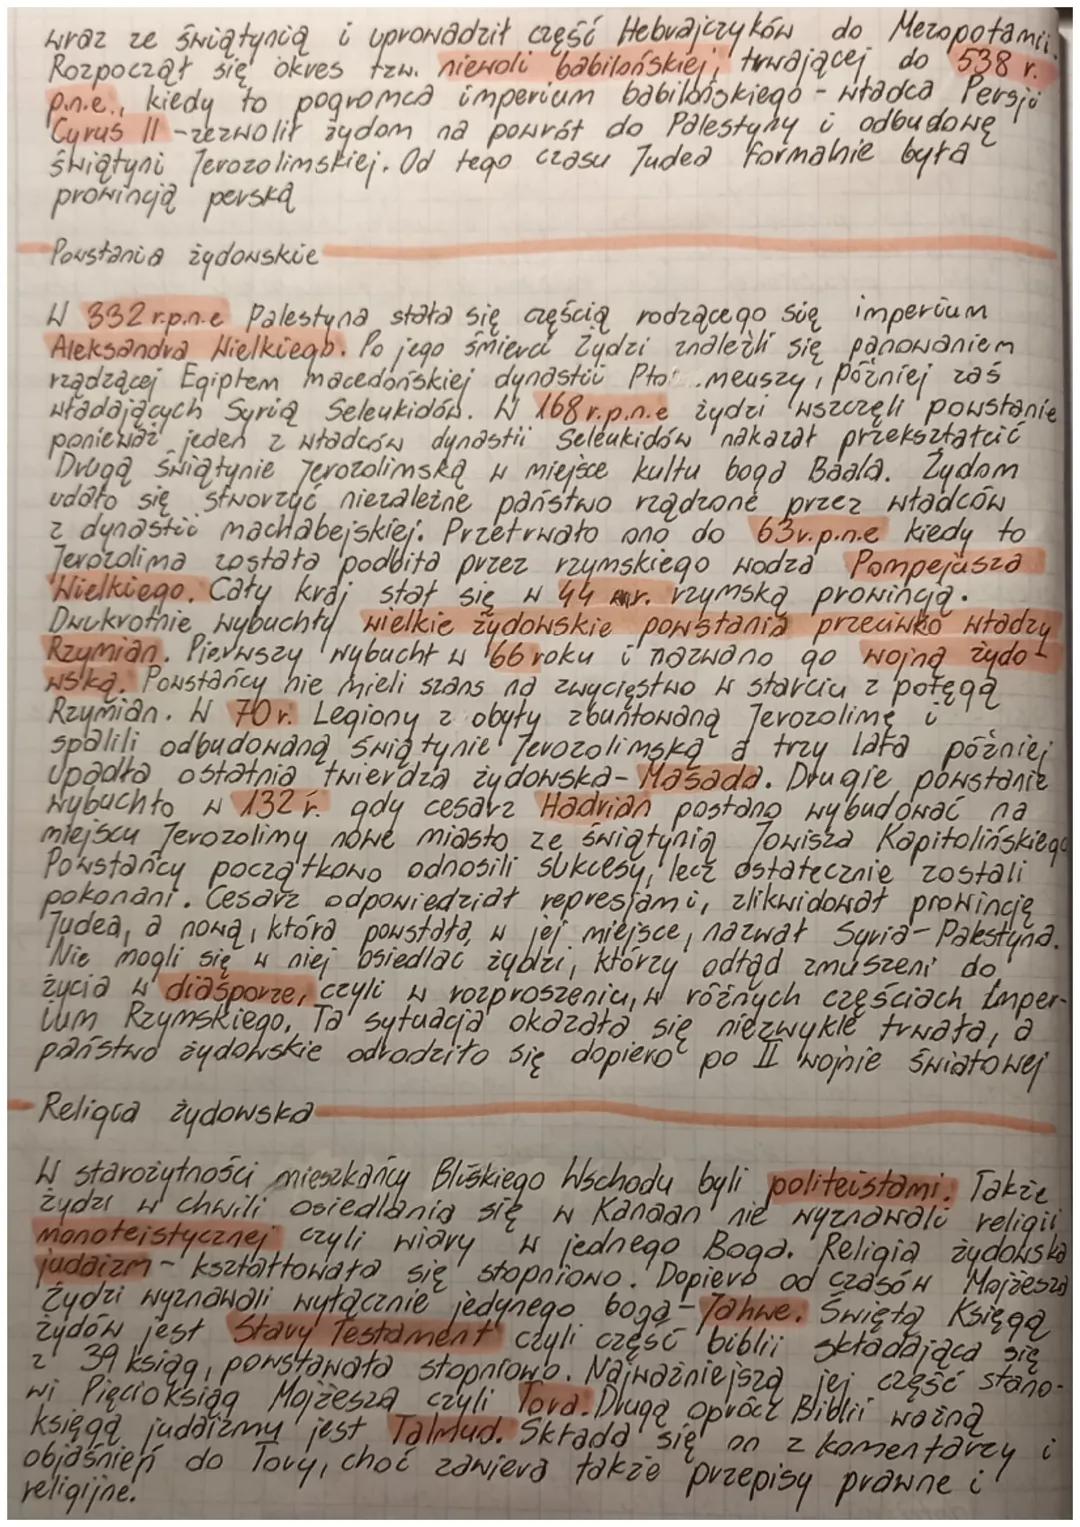 wraz ze świątynią i uprowadził część Hebrajczyków do Mezopotamii.
Rozpoczął się okres tzw. niewoli babilońskiej, trwającej do 538 r.
p.n.e., kiedy to pogromca imperium babilońskiego - władca Persji
Cyrus II - zezwolił żydom na powrót do Palestyny i odbudowę
świątyni Jerozolimskiej. Od tego czasu Judea formalnie była
prowincją perską
Powstania żydowskie
W 332 r.p.n.e Palestyna stała się częścią rodzącego się imperium
Aleksandra Wielkiego. Po jego śmierci Żydzi znaleźli się panowaniem
rządzącej Egiptem macedońskiej dynastii Ptolemeuszy, później zaś
władających Syrią Seleukidów. W 168 r.p.n.e żydzi wszczęli powstanie
ponieważ jeden z władców dynastii Seleukidów nakazał przekształcić
Drugą świątynie Jerozolimską w miejsce kultu boga Baala. Żydom
udało się stworzyć niezależne państwo rządzone przez władców
z dynastii machabejskiej. Przetrwało ono do 63r.p.n.e kiedy to
Jerozolima została podbita przez rzymskiego wodza Pompejusza
Wielkiego. Cały kraj stał się w 44 r. rzymską prowincją.
Dwukrotnie wybuchły wielkie żydowskie powstania przeciwko władzy
Rzymian. Pierwszy wybuchł w 66 roku i nazwano go wojną żydo-
wską. Powstańcy nie mieli szans na zwycięstwo w starciu z potęgą
Rzymian. W 70 r. Legiony z obyły zbuntowaną Jerozolimę i
spalili odbudowaną świątynie Jerozolimską a trzy lata później
upadła ostatnia twierdza żydowska - Masada. Drugie powstanie
wybuchło w 132 r. gdy cesarz Hadrian postano wybudować na
miejscu Jerozolimy nowe miasto ze świątynią Jowisza Kapitolińskiego
Powstańcy początkowo odnosili sukcesy, lecz ostatecznie zostali
pokonani. Cesarz odpowiedział represjami, zlikwidował prowincję
Judea, a nową, która powstała w jej miejsce, nazwał Syria-Palestyna.
Nie mogli się w niej osiedlać żydzi, którzy odtąd zmuszeni do
życia w diasporze, czyli w rozproszeniu, w różnych częściach Imper-
ium Rzymskiego. Ta sytuacja okazała się niezwykle trwała, a
państwo żydowskie odrodziło się dopiero po II wojnie światowej
Religia żydowska
W starożytności mieszkańcy Bliskiego Wschodu byli politeistami. Także
żydzi w chwili osiedlania się w Kanaan nie wyznawali religii
monoteistycznej czyli wiary w jednego Boga. Religia żydowska
judaizm - kształtowała się stopniowo. Dopiero od czasów Mojżesza
Żydzi wyznawali wyłącznie jedynego boga - Jahwe. Świętą Księgą
żydów jest Stary Testament czyli część biblii składająca się
z 39 ksiąg, powstawała stopniowo. Najważniejszą jej część stano-
wi Pięcioksiąg Mojżesza czyli Tora. Drugą oprócz Biblii ważną
księgą judaizmy jest Talmud. Składa się on z komentarzy i
objaśnień do Tory, choć zawiera także przepisy prawne i
religijne.